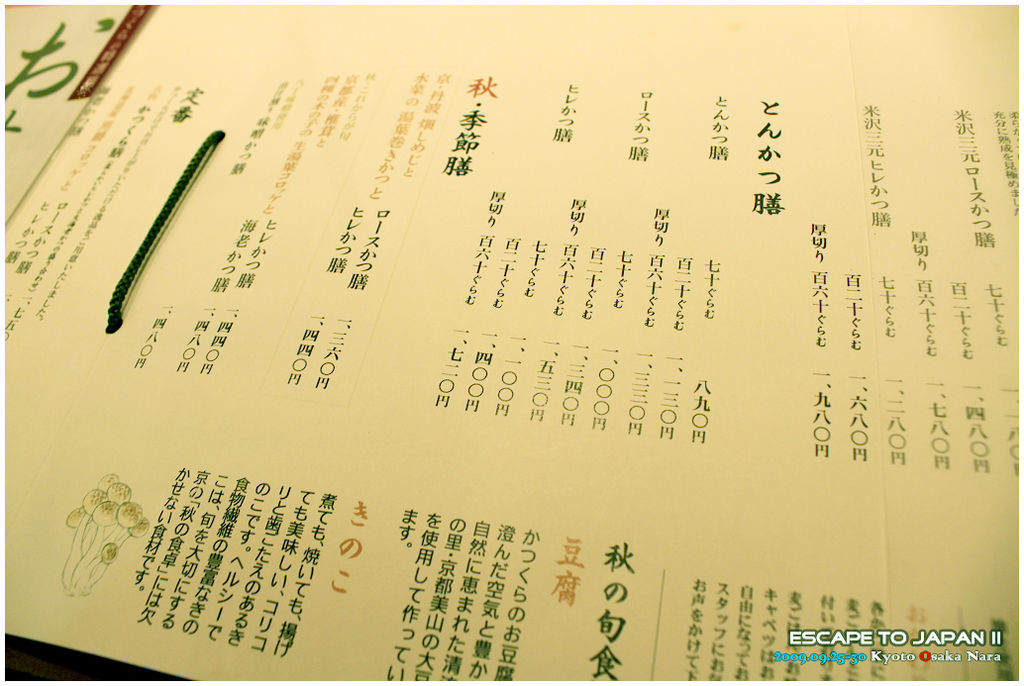 充分に熟成を見極めました
米沢三元 ロースかつ膳
七十ぐらむ
百二十ぐらむ 一、四八〇円
厚切り 百六十ぐらむ 一、七八〇円
米沢三元 ヒレかつ膳
七十ぐらむ 一、二八〇円
百二十ぐらむ 一、六八〇円
厚切り 百六十ぐらむ 一、九八〇円
とんかつ膳
とんかつ膳
七十ぐらむ 八九〇円
百二十ぐらむ 一、一三〇円
厚切り 百六十ぐらむ 一、三三〇円
ロースかつ膳
七十ぐらむ 一、〇〇〇円
百二十ぐらむ 一、三四〇円
厚切り 百六十ぐらむ 一、五三〇円
ヒレかつ膳
七十ぐらむ 一、一〇〇円
百二十ぐらむ 一、四〇〇円
厚切り 百六十ぐらむ 一、七二〇円
秋・季節膳
京・丹波 畑しめじと
水菜の湯葉巻きかつと
ロースかつ膳 一、三六〇円
ヒレかつ膳 一、四四〇円
京都産 椎茸と
四種の木の子の生湯葉コロッケと
ヒレかつ膳 一、四四〇円
海老かつ膳 一、四八〇円
味噌かつ膳 一、四八〇円
定番
かつくら膳
コロッケと
ロースかつ膳
ヒレかつ膳
海老かつ膳
お
秋の旬食
豆腐
かつくらのお豆腐
澄んだ空気と豊か
自然に恵まれた清
の里・京都美山の大豆
を使用して作ってい
ます。
きのこ
煮ても、焼いても、揚げ
ても美味しい、コリコ
リと歯ごたえのあるき
のこです。ヘルシーで
食物繊維の豊富なきの
こは、旬を大切にする
京の「秋の食卓」には欠
かせない食材です。
麦ごはん
キャベツはお
自由になってお
スタッフにお
お声をかけて下
ESCAPE TO JAPAN II
2009.09.25-30 Kyoto Osaka Nara